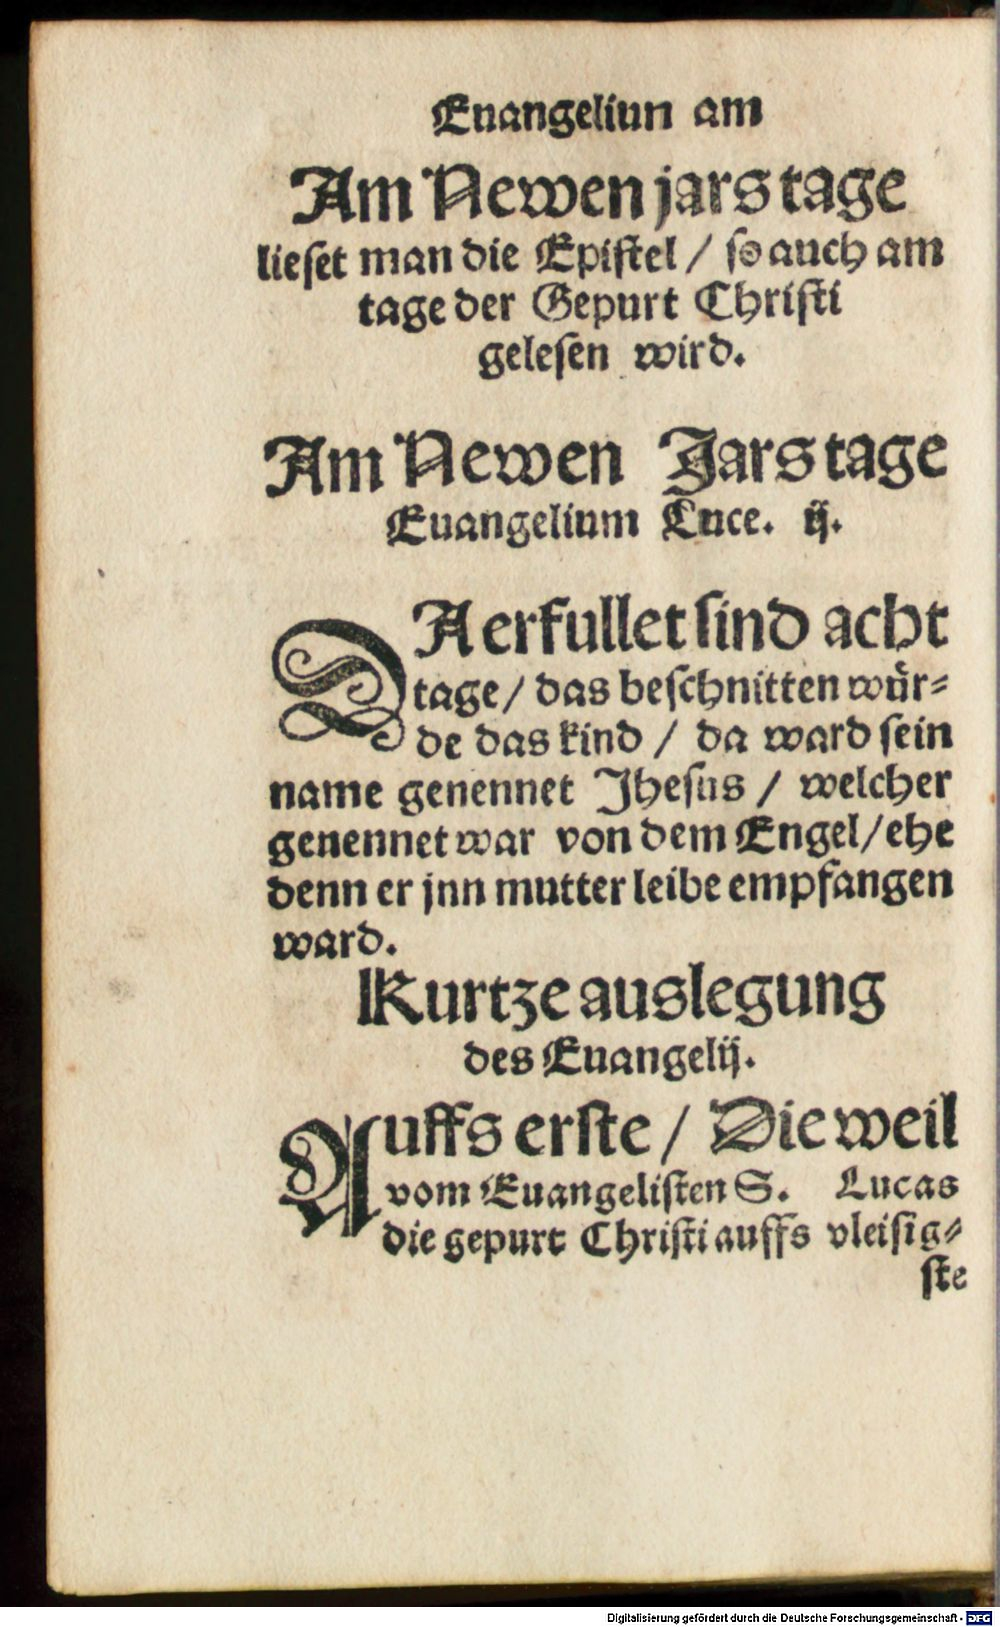 Euangeliun am
Am Newen jars tage
lieset man die Epistel / so auch am
tage der Gepurt Christi
gelesen wird.
Am Newen Jars tage
Euangelium Luce. ij.
DA erfullet sind acht
tage / das beschnitten wür-
de das kind / da ward sein
name genennet Jhesus / welcher
genennet war von dem Engel / ehe
denn er jnn mutter leibe empfangen
ward.
Kurtze auslegung
des Euangelij.
Auffs erste / Die weil
vom Euangelisten S. Lucas
die gepurt Christi auffs vleisig-
ste
Digitalisierung gefördert durch die Deutsche Forschungsgemeinschaft - DFG